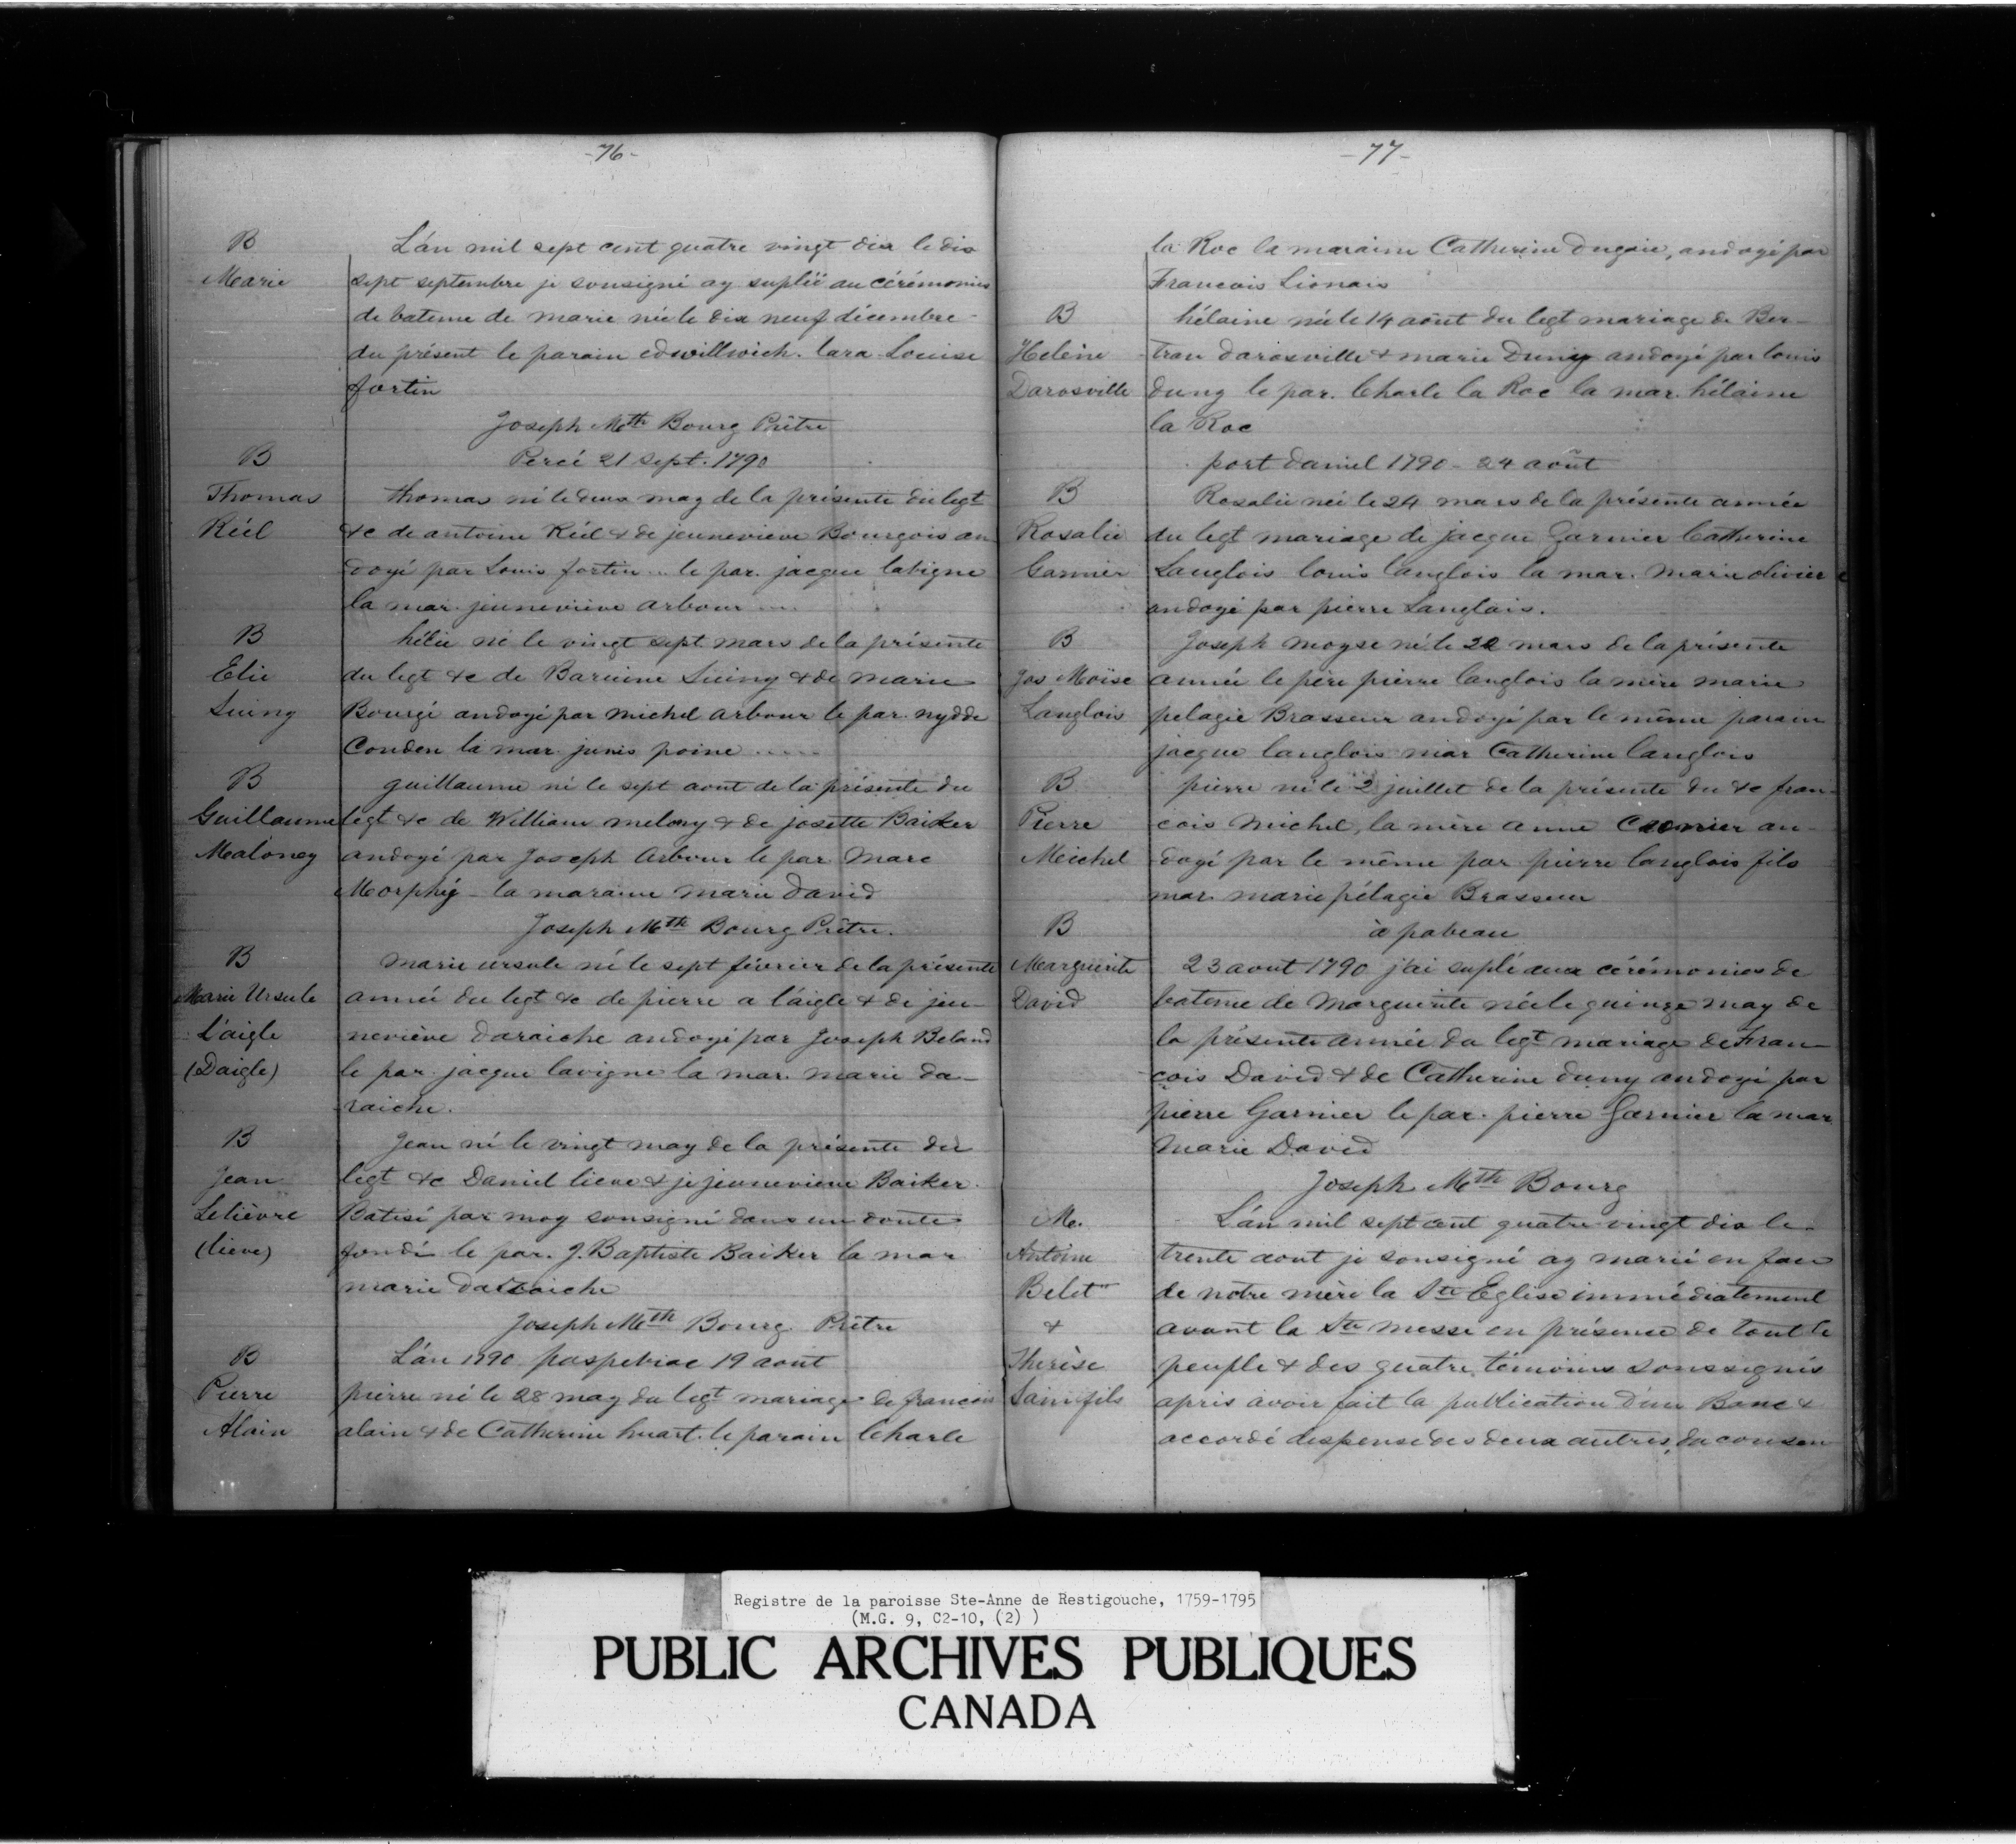 -76-
B
Marie
L'án mil sept cent quatre vingt dix le dix
sept septembre je sousigné ay supléé au cérémonies
de bateme de marie née le dix neuf décembre -
du présent le parain edwillwich. lara Louise
fortin
Joseph Mth Bourg Prêtre
B
Percé 21 sept. 1790
Thomas
Réél
thomas né le deux may de la présente du legt
&c de antoine Réél & de jeunevieve Bourgois an
doyé par Louis fortin .. le par. jacque lavigne
la mar. jeuneviève arbour ....
B
Elie
Luing
hélie né le vingt sept mars de la présente
du legt &c de Luing & de marie
Bourgé andoyé par michel arbour le par. nydde
Conden la mar. junis poine .....
B
Guillaume
Maloney
guillaume né le sept aout de la présente du
legt &c de William melony & de josette Baiker
andoyé par Joseph Arbour le par Marc
Morphéy - la maraine marie David
Joseph Mth Bourg Prêtre.
B
Marie Ursule
L'aigle
(Daigle)
marie ursule né le sept février de la présente
année du legt &c de pierre a l'áigle & de jeu-
neviève daraiche andoyé par Joseph Beland
le par. jacque lavigne la mar. marie da-
raiche.
B
Jean
Lelièvre
(lieve)
Jean né le vingt may de la présente du
legt &c Daniel lieve & je jeunevieve Baiker.
Batisé par moy sousigné dans un doute
fondé le par. J. Baptiste Baiker la mar
marie daraiche
Joseph Mth Bourg. Prêtre
B
Pierre
Alain
L'án 1790 paspebiac 19 aout
pierre né le 28 may du legt mariage de francois
alain & de Catherine huart. le parain Charle
-77-
la Roc la maraine Catherine dugaie, andoyé par
Francois Lionais
B
Helène
Darosville
hélaine née le 14 aout du legt mariage de Ber-
tran darosville & marie Duny andoyé par louis
duny le par. Charle la Roc la mar. hélaine
la Roc
port daniel 1790 - 24 aout
B
Rosalie
Garnier
Rosalie née le 24 mars de la présente année
du legt mariage de jacque Garnier Catherine
Langlois louis langlois la mar. marie olivier
andoyé par pierre Langlais.
B
Jos Moïse
Langlois
Joseph moyse né le 22 mars de la présente
année le père pierre langlois la mère marie
pelagie Brasseur andoyé par le même parain
jacque langlois mar Catherine langlois
B
Pierre
Michel
pierre né le 2 juillet de la présente du &c fran-
cois michel, la mère anne Cronier an-
doyé par le même par pierre langlois fils
mar. marie pélagie Brasseur
B
Marguerite
David
à pabeau
23 aout 1790 j'ai suplé aux cérémonies de
bateme de Marguerite née le quinze may de
la présente année du legt mariage de Fran-
çois David & de Catherine duny andoyé par
pierre Garnier le par. pierre Garnier la mar
marie David
Joseph Mth Bourg
M.
Antoine
Belet
&
Therèse
Sainfils
L'án mil sept cent quatre vingt dix le
trente aout je sousigné ay marié en face
de notre mère la Ste Eglise immédiatement
avant la Ste messe en présence de tout le
peuple & des quatre témoins soussignés
après avoir fait la publication d'un Banc &
accordé dispense des deux autres, du consen
Registre de la paroisse Ste-Anne de Restigouche, 1759-1795
(M.G. 9, C2-10, (2) )
PUBLIC ARCHIVES PUBLIQUES
CANADA